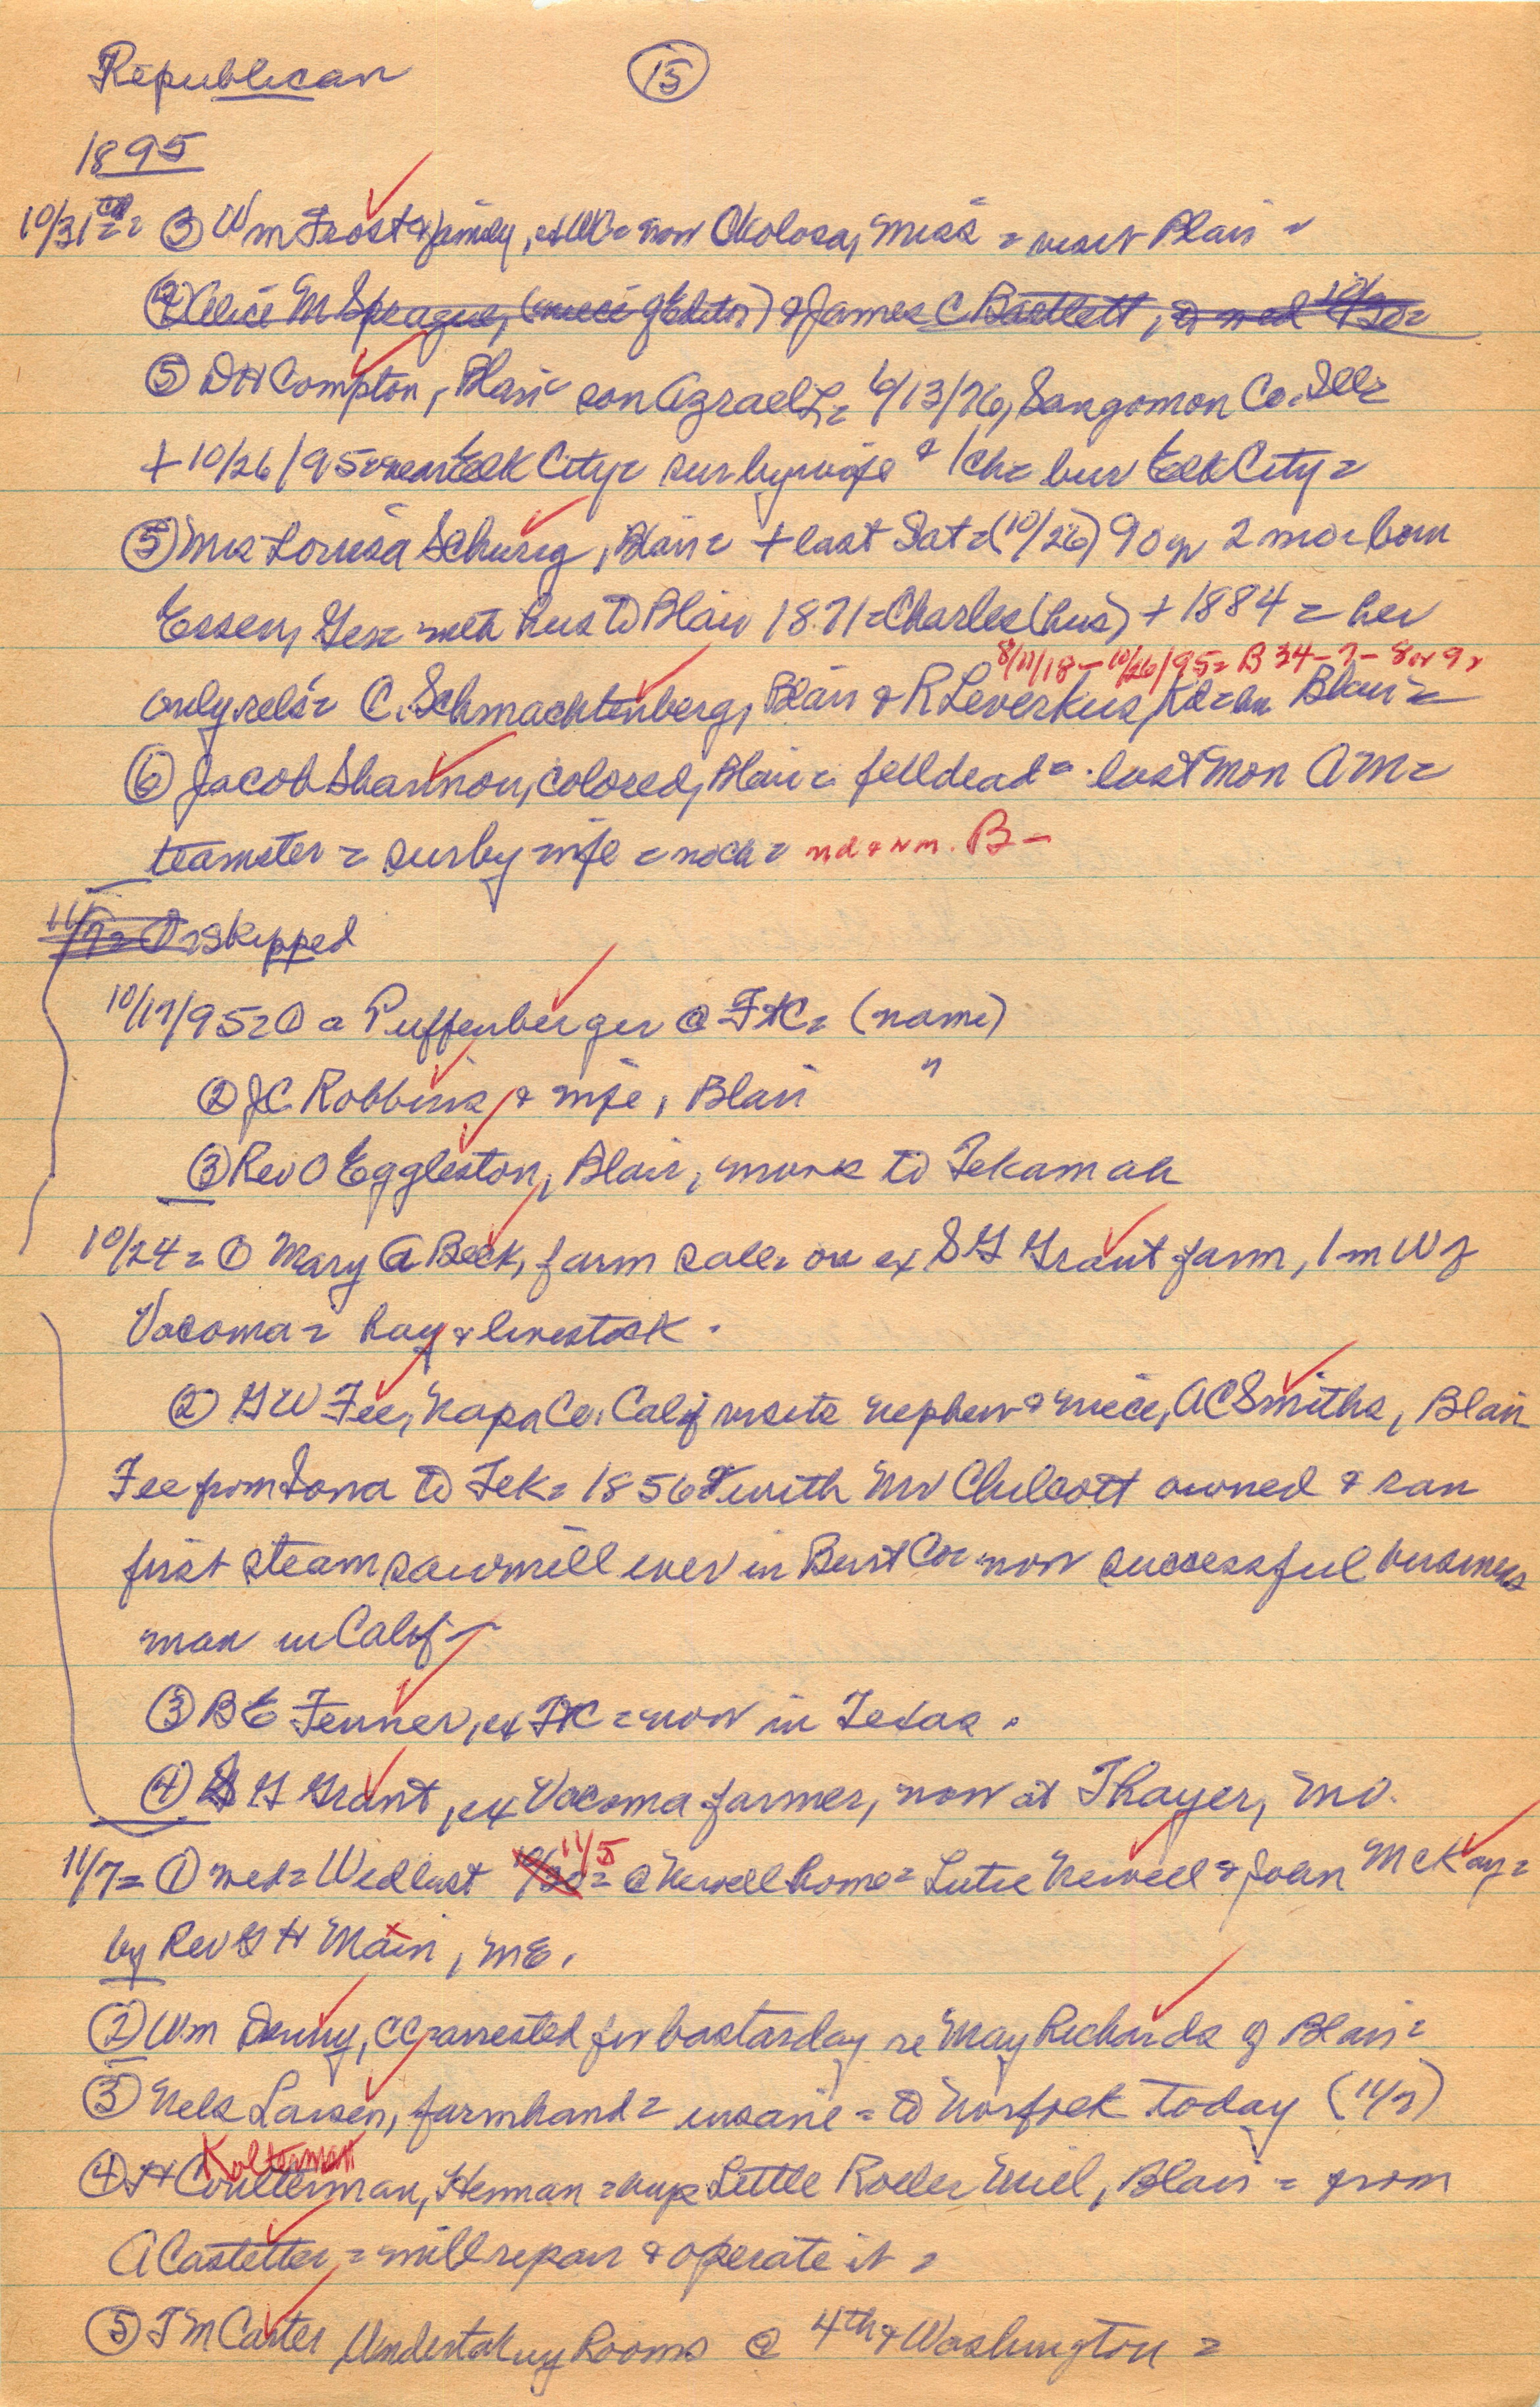 Republican (15)
1895
10/31 = (3) Wm Frost & family, ex = now Okolosa, Miss = visit Blair =
(4) Alice M Sprague, (niece of Editor) & James C Bartlett, med 10/30 =
(5) DH Compton, Blair son Azrael L = 6/13/76, Sangomon Co. Ill =
+ 10/26/95 = near Elk City = sur by wife & 1 ch = bur Elk City =
(5) Mrs Louisa Schurig, Blair = + last Sat = (10/26) 90 yr 2 mo = born
Essen, Ger = with hus to Blair 1871 = Charles (hus) + 1884 = her
8/27/18 - 10/26/95 = B 34 - 7 - 8 or 9 =
only rels = C. Schmachtenberg, Blair & R Leverkus, Blair =
(6) Jacob Shannon, colored, Blair = fell dead = last Mon AM =
teamster = sur by wife = no ch = B -
11/7 = (1) = skipped
10/17/95 = (1) a Puffenberger @ Ft C = (name)
(2) JC Robbins & wife, Blair "
(3) Rev O Eggleston, Blair, moves to Tekamah
10/24 = (1) Mary A Beck, farm sale = on ex S G Grant farm, 1 m W of
Vacoma = hay & livestock.
(2) G W Fee, Napa Co. Calif visits nephew & niece, AC Smiths, Blair
Fee from Iowa to Tek = 1856 & with Mr Chilcott owned & ran
first steam sawmill ever in Burt Co = now successful business
man in Calif -
(3) B E Fenner, ex Ft C = now in Texas.
(4) S G Grant, ex Vacoma farmer, now at Thayer, Mo.
11/7 = (1) med = Wed last 10/30 = 11/5 @ Newell home = Lutie Newell & John McKay =
by Rev G H Main, ME.
(2) Wm Denny, CC = arrested for bastarday re May Richards of Blair =
(3) Nels Larsen, farmhand = insane = to Norfolk today (11/7)
Kolterman
(4) H Coulterman, Herman = buys Little Roller Mill, Blair = from
A Castetter = will repair & operate it =
(5) T M Carter Undertaking Rooms @ 4th & Washington =